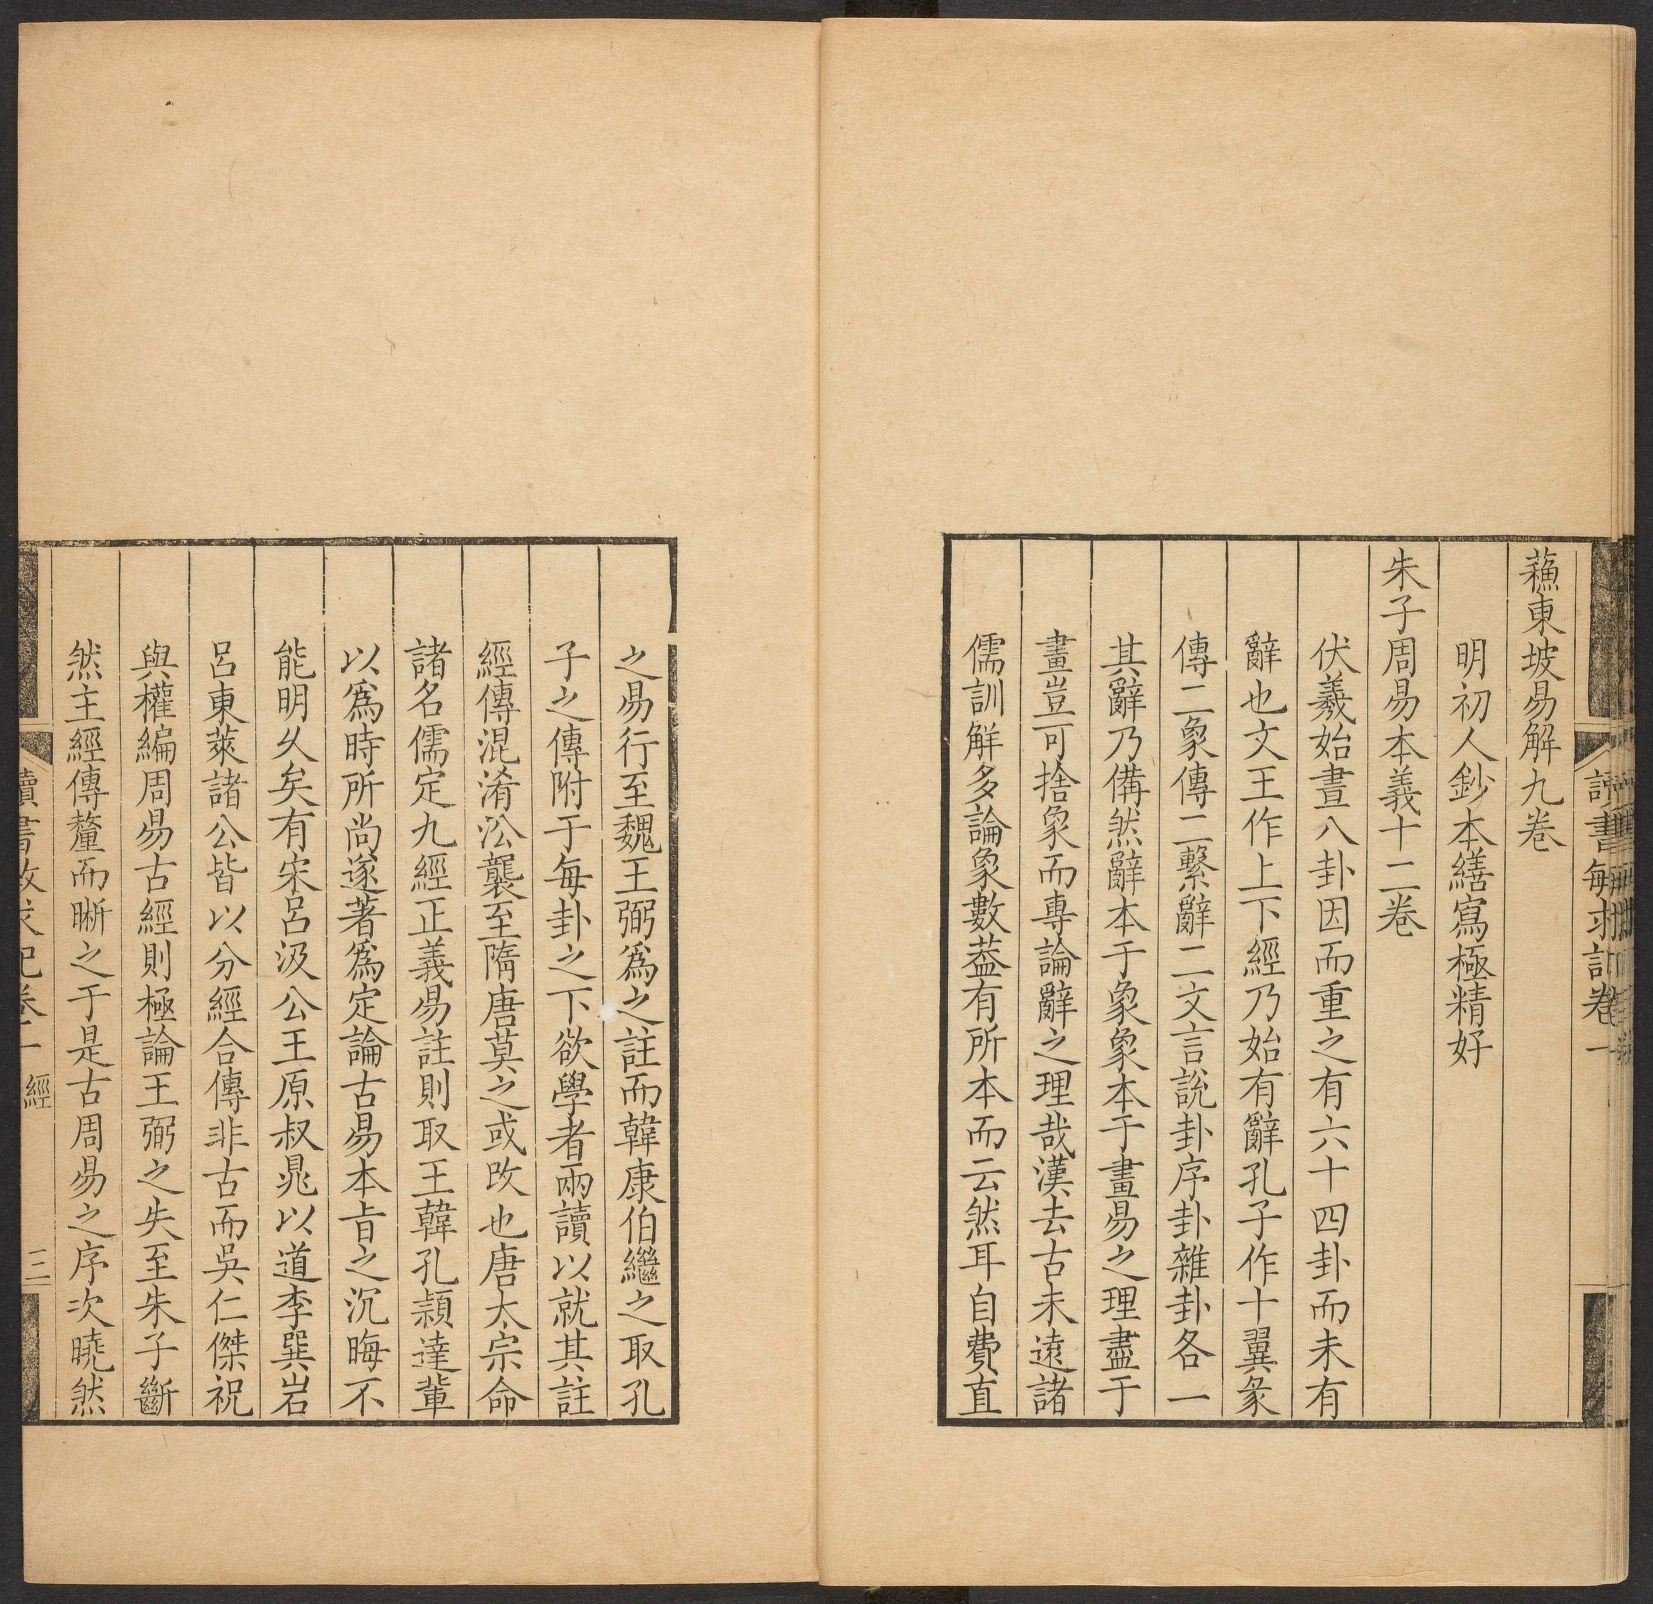 蘓東坡易解九卷
明初人鈔本繕寫極精好
朱子周易本義十二卷
伏羲始畫八卦因而重之有六十四卦而未有
辭也文王作上下經乃始有辭孔子作十翼彖
傳二象傳二繫辭二文言說卦序卦雜卦各一
其辭乃備然辭本于象象本于畫易之理盡于
畫豈可捨象而專論辭之理哉漢去古未遠諸
儒訓解多論象數葢有所本而云然耳自費直
之易行至魏王弼爲之註而韓康伯繼之取孔
子之傳附于每卦之下欲學者兩讀以就其註
經傳混淆㳂襲至隋唐莫之或改也唐太宗命
諸名儒定九經正義易註則取王韓孔頴達輩
以爲時所尚遂著爲定論古易本旨之沉晦不
能明乆矣有宋呂汲公王原叔晁以道李巽岩
呂東萊諸公皆以分經合傳非古而吳仁傑祝
與權編周易古經則極論王弼之失至朱子斷
然主經傳釐而晰之于是古周易之序次曉然
讀書敏求記卷一 經 三